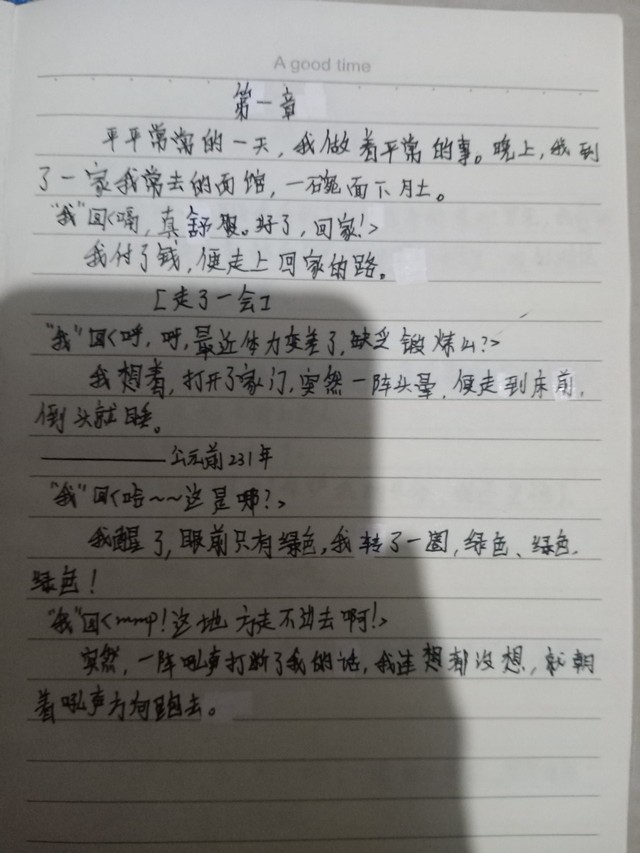 A good time
第一章
平平常常的一天，我做着平常的事。晚上，我到
了一家我常去的面馆，一碗面下肚。
"我"回<嗝，真舒服。好了，回家！>
我付了钱，便走上回家的路。
[走了一会]
"我"回<呼，呼，最近体力变差了，缺乏锻炼么？>
我想着，打开了家门，突然一阵头晕，便走到床前，
倒头就睡。
——公元前231年
"我"回<哈~~这是哪？>
我醒了，眼前只有绿色，我转了一圈，绿色、绿色，
绿色！
"我"回<mmp！这地方走不出去啊！>
突然，一阵吼声打断了我的话，我连想都没想，就朝
着吼声方向跑去。